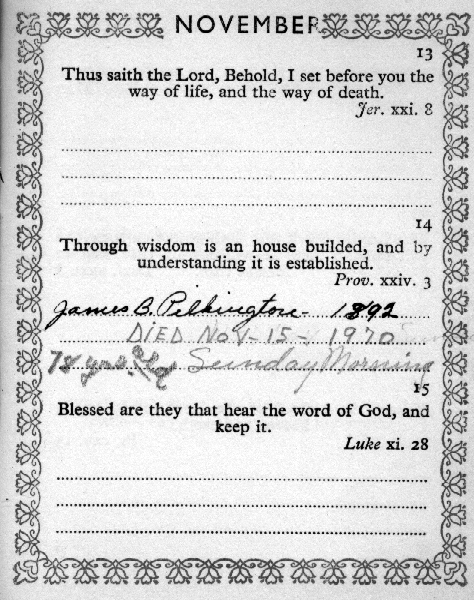 NOVEMBER
13
Thus saith the Lord, Behold, I set before you the
way of life, and the way of death.
Jer. xxi. 8
14
Through wisdom is an house builded, and by
understanding it is established.
Prov. xxiv. 3
James B. Pilkington - 1892
DIED Nov - 15 - 1970
78 yrs. old Sunday Morning
15
Blessed are they that hear the word of God, and
keep it.
Luke xi. 28